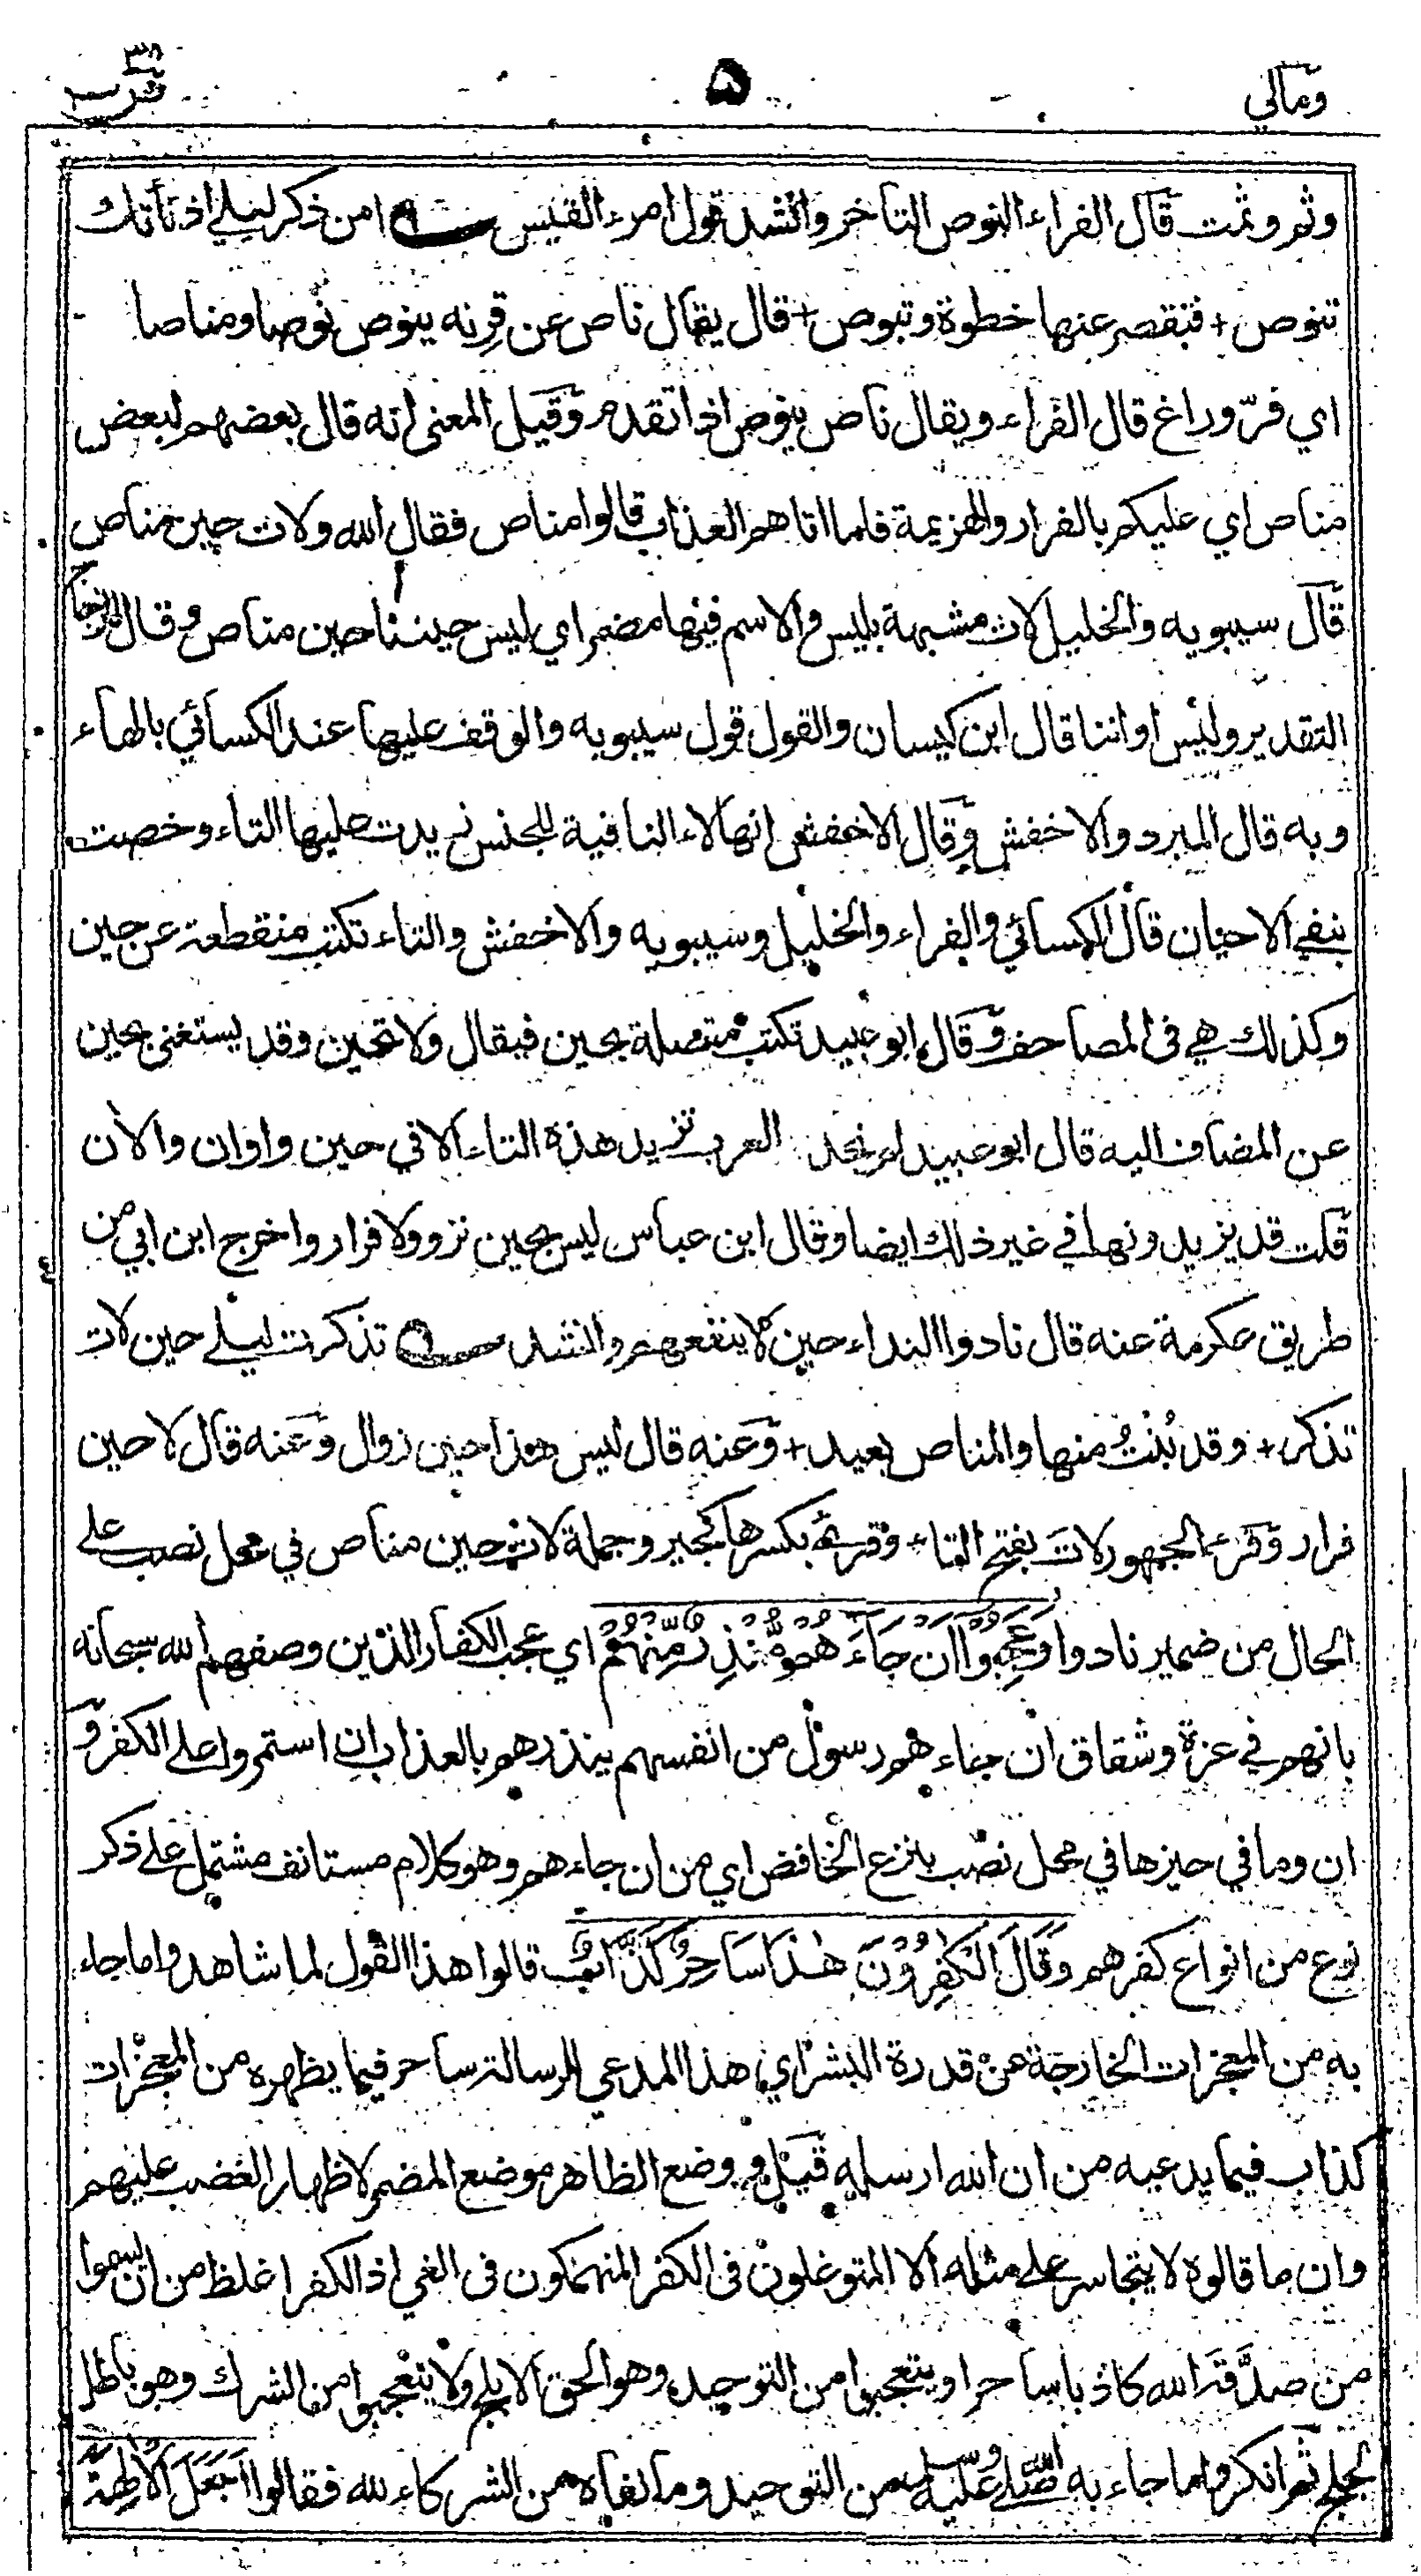 ومالي ۵ ص۳۸
وثم وثمت قال الفراء النوص التاخر وانشد قول امرء القيس امن ذكر ليلى اذ نأتك
تنوص + فتقصر عنها خطوة وتبوص + قال يقال ناص عن قرنه ينوص نوصا ومناصا
اي فرّ وراغ قال الفراء ويقال ناص ينوص اذا تقدم وقيل المعنى انه قال بعضهم لبعض
مناص اي عليكم بالفرار والهزيمة فلما اتاهم العذاب قالوا مناص فقال الله ولات حين مناص
قال سيبويه والخليل لات مشبهة بليس والاسم فيها مضمر اي ليس حيننا حين مناص وقال الزجاج
التقدير وليس اواننا قال ابن كيسان والقول قول سيبويه والوقف عليها عند الكسائي بالهاء
وبه قال المبرد والاخفش وقال الاخفش انها لاء النافية للجنس زيدت عليها التاء وخصت
بنفي الاحيان قال الكسائي والفراء والخليل وسيبويه والاخفش والتاء تكتب منقطعة عن حين
وكذلك هي فى المصاحف وقال ابو عبيد تكتب متصلة بحين فيقال ولا تحين وقد يستغنى بحين
عن المضاف اليه قال ابو عبيد لم نجد العرب تزيد هذه التاء الا في حين واوان والان
قلت قد يزيدونها في غير ذلك ايضا وقال ابن عباس ليس بحين نزو ولا فرار واخرج ابن ابي من
طريق عكرمة عنه قال نادوا النداء حين لا ينفعهم وانشد تذكرت ليلى حين لات
تذكر + وقد بُنْتُ منها والمناص بعيد + وعنه قال ليس هذا حين زوال وعنه قال لا حين
فرار وقرء الجمهور لاتَ بفتح التاء وقرئ بكسرها كجير وجملة لات حين مناص في محل نصب على
الحال من ضمير نادوا وَعَجِبُوْٓا اَنْ جَآءَ هُمْ مُّنْذِرٌ مِّنْهُمْ اي عجب الكفار الذين وصفهم الله سبحانه
بانهم في عزة وشقاق ان جاءهم رسول من انفسهم ينذرهم بالعذاب ان استمروا على الكفر و
ان وما في حيزها في محل نصب بنزع الخافض اي من ان جاءهم وهو كلام مستانف مشتمل على ذكر
نوع من انواع كفرهم وَقَالَ الْكٰفِرُوْنَ هٰذَا سَاحِرٌ كَذَّابٌ قالوا هذا القول لما شاهدوا ما جاء
به من المعجزات الخارجة عن قدرة البشر اي هذا المدعي للرسالة ساحر فيما يظهره من المعجزات
كذاب فيما يدعيه من ان الله ارسله قيل ووضع الظاهر موضع المضمر لاظهار الغضب عليهم
وان ما قالوه لا يتجاسر على مثله الا المتوغلون فى الكفر المنهمكون فى الغي اذ الكفر اغلظ من ان يسموا
من صدَّقه الله كاذبا ساحرا ويتعجبوا من التوحيد وهو الحق الابلج ولا يتعجبوا من الشرك وهو باطل
لجلج ثم انكروا ما جاء به صلى الله عليه وسلم من التوحيد وما نفاه من الشركاء لله فقالوا اَجَعَلَ الْاٰلِهَةَ